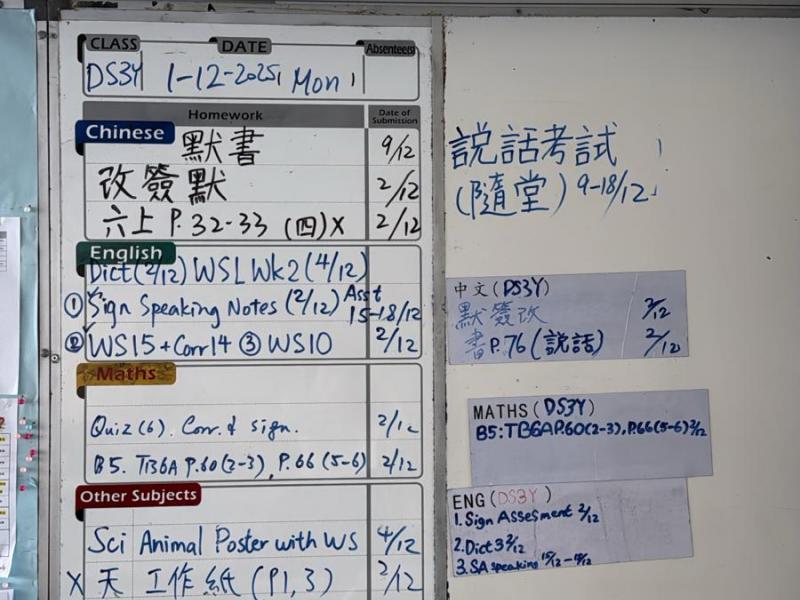 CLASS DATE Absentees
DS3Y 1-12-2025, Mon
Homework Date of Submission
Chinese
默書 9/12
改簽默 2/12
六上 P.32-33 (四)X 2/12
English
Dict (2/12) WSL Wk2 (4/12)
① Sign Speaking Notes (2/12) Asst 15-18/12
② WS15 + Corr14 ③ WS10 2/12
Maths
Quiz (6). Corr. & sign. 2/12
B5. TB6A P.60(2-3), P.66 (5-6) 2/12
Other Subjects
Sci Animal Poster with WS 4/12
X 天 工作紙 (P1,3) 2/12
説話考試
(隨堂) 9-18/12
中文 (DS3Y)
默簽改 2/12
書P.76 (説話) 2/12
MATHS (DS3Y)
B5: TB6A P.60(2-3), P.66(5-6) 2/12
ENG (DS3Y)
1. Sign Assesment 2/12
2. Dict 3 2/12
3. SA speaking 15/12-